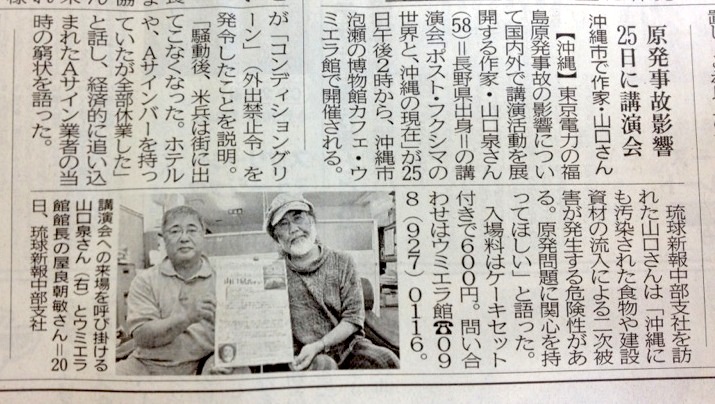 原発事故影響
25日に講演会
沖縄市で作家・山口さん
【沖縄】東京電力の福
島原発事故の影響につい
て国内外で講演活動を展
開する作家・山口泉さん
(58)=長野県出身=の講
演会「ポスト・フクシマの
世界と、沖縄の現在」が25
日午後2時から、沖縄市
泡瀬の博物館カフェ・ウ
ミエラ館で開催される。
琉球新報中部支社を訪
れた山口さんは「沖縄に
も汚染された食物や建設
資材の流入による二次被
害が発生する危険性があ
る。原発問題に関心を持
ってほしい」と語った。
入場料はケーキセット
付きで600円。問い合
わせはウミエラ館☎09
8(927)0116。
講演会への来場を呼び掛ける
山口泉さん(右)とウミエラ
館館長の屋良朝敏さん=20
日、琉球新報中部支社
が「コンディショングリ
ーン」(外出禁止令)を
発令したことを説明。
「騒動後、米兵は街に出
てこなくなった。ホテル
や、Aサインバーを持っ
ていたが全部休業した」
と話し、経済的に追い込
まれたAサイン業者の当
時の窮状を語った。